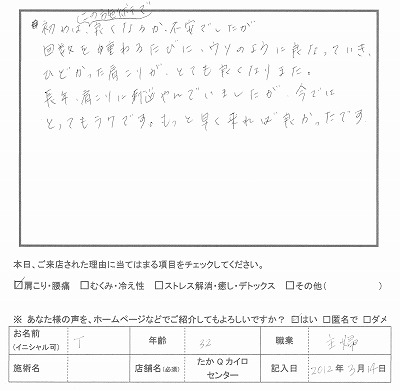 初めは、良くなるか、不安でしたが
回数を重ねるたびに、ウソのように良なっていき、
ひどかった肩こりが、とても良くなりました。
長年、肩こりに悩んでいましたが、今では
とってもラクです。もっと早く来れば良かったです。
本日、ご来店された理由に当てはまる項目をチェックしてください。
☑肩こり・腰痛 □むくみ・冷え性 □ストレス解消・癒し・デトックス □その他( )
※ あなた様の声を、ホームページなどでご紹介してもよろしいですか? ☑はい □匿名で □ダメ
お名前 (イニシャル可) T 年齢 32 職業 主婦
施術名 店舗名(必須) たかQカイロセンター 記入日 2012年3月14日